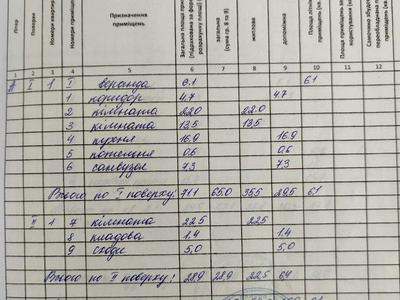 Літер
Поверхи
Номери квартир
Номери приміщень
Призначення приміщень
Загальна площа
(підрахована за
розрахунку площі)
загальна (сума гр. 8 та 9)
житлова
допоміжна
Площа
Площа приміщень
користування
Самочинно
переобладнана
1 2 3 4 5 6 7 8 9 10 11 12
I 1 I веранда 6.1 6.1
1 коридор 4.7 4.7
2 кімната 22.0 22.0
3 кімната 13.5 13.5
4 кухня 16.9 16.9
5 0.6 0.6
6 санвузол 7.3 7.3
Всього по I поверху: 71.1 65.0 35.5 29.5 6.1
II 1 7 кімната 22.5 22.5
8 кладова 1.4 1.4
9 сходи 5.0 5.0
Всього по II поверху: 28.9 28.9 22.5 6.4